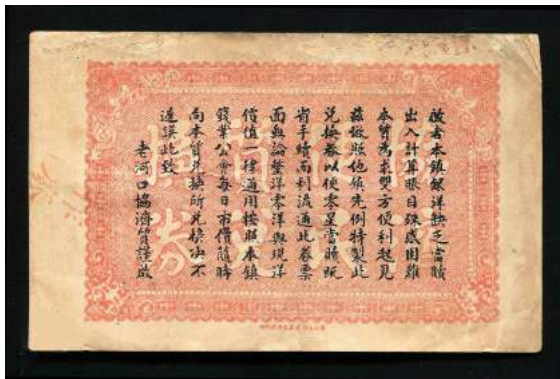 啟者本鎮銀洋缺乏當贖
出入計算賬目殊感困難
本質為求雙方便利起見
茲倣照他鎮先例特製此
兌換券以便零星當贖既
省手續而利流通此券票
面無論整洋零洋與現洋
價值一律通用按照本鎮
錢業公會每日市價隨時
向本質兌換所兌換決不
遲誤此致
老河口協濟質謹啟